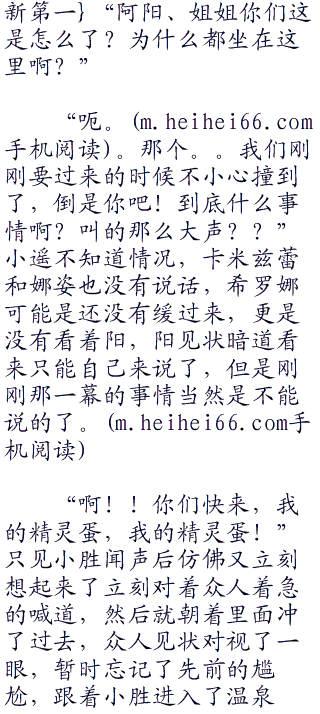 新第一} “阿阳、姐姐你们这
是怎么了？为什么都坐在这
里啊？”
“呃。(m.heihei66.com
手机阅读)。那个。。我们刚
刚要过来的时候不小心撞到
了，倒是你吧！到底什么事
情啊？叫的那么大声？？”
小遥不知道情况，卡米兹蕾
和娜姿也没有说话，希罗娜
可能是还没有缓过来，更是
没有看着阳，阳见状暗道看
来只能自己来说了，但是刚
刚那一幕的事情当然是不能
说的了。(m.heihei66.com手
机阅读)
“啊！！你们快来，我
的精灵蛋，我的精灵蛋！”
只见小胜闻声后仿佛又立刻
想起来了立刻对着众人着急
的喊道，然后就朝着里面冲
了过去，众人见状对视了一
眼，暂时忘记了先前的尴
尬，跟着小胜进入了温泉